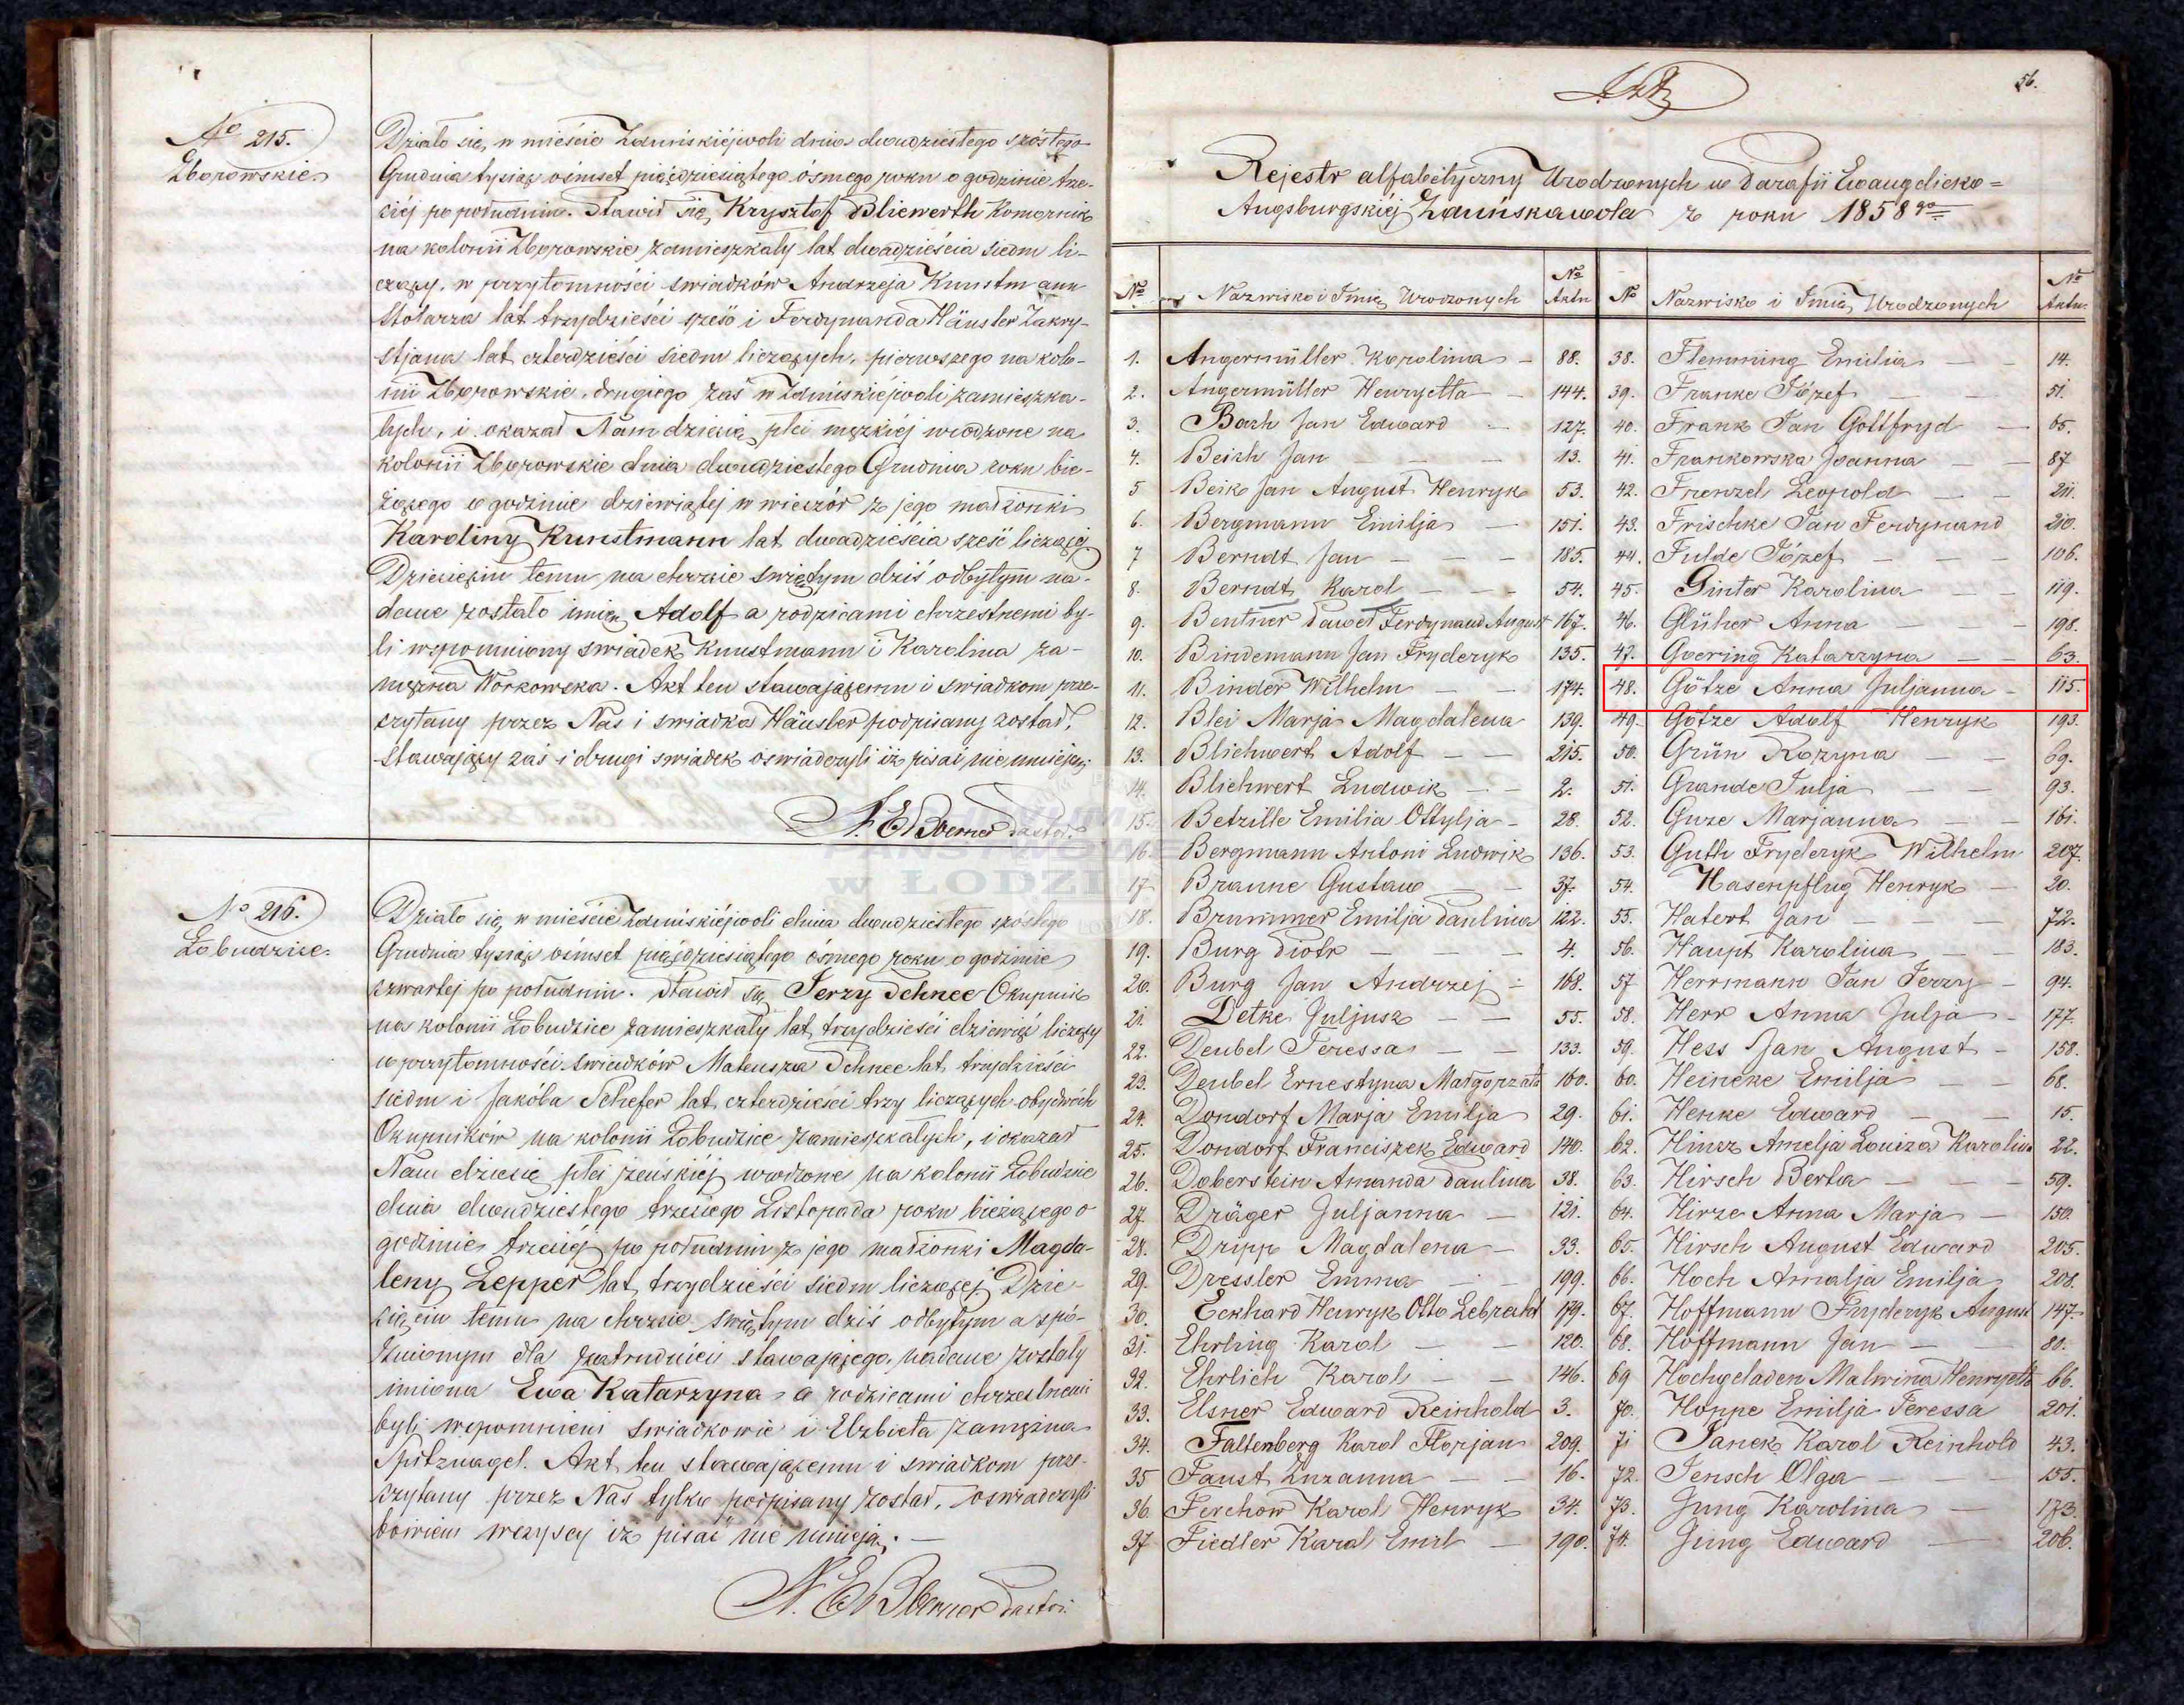 No 215.
Zborowskie.
Działo się w mieście Zduńskiéjwoli dnia dwudziestego szóstego
Grudnia tysiąc ośmset pięćdziesiątego ósmego roku o godzinie trze-
ciéj po południu. Stawił się Krysztof Bliewerth Komornik
na kolonii Zborowskie zamieszkały lat dwadzieścia siedm li-
czący, w przytomności świadków Andrzeja Kunstmann
Stolarza lat trzydzieści sześć i Ferdynanda Häusler Zakry-
stjana lat czterdzieści siedm liczących, pierwszego na kolo-
nii Zborowskie, drugiego zaś w Zduńskiéjwoli zamieszka-
łych, i okazał Nam dziecię płci męzkiéj urodzone na
kolonii Zborowskie dnia dwudziestego Grudnia roku bie-
żącego o godzinie dziewiątej w wieczór z jego małżonki
Karoliny Kunstmann lat dwadzieścia sześć liczącéj
Dziecięciu temu na chrzcie świętym dziś odbytym na-
dane zostało imię Adolf a rodzicami chrzestnemi by-
li wspomniony świadek Kunstmann i Karolina za-
mężna Workowska. Akt ten stawającemu i świadkom prze-
czytany przez Nas i świadka Häusler podpisany został,
Stawający zaś i drugi świadek oświadczyli iż pisać nie umieją.
N. E. Boerner Pastor.
No 216.
Łobudzice.
Działo się w mieście Zduńskiéjwoli dnia dwudziestego szóstego
Grudnia tysiąc ośmset pięćdziesiątego ósmego roku o godzinie
czwartej po południu. Stawił się Jerzy Schnee Okupnik
na kolonii Łobudzice zamieszkały lat trzydzieści dziewięć liczący
w przytomności świadków Mateusza Schnee lat trzydzieści
siedm i Jakóba Schefer lat czterdzieści trzy liczących obydwóch
Okupników na kolonii Łobudzice zamieszkałych, i okazał
Nam dziecię płci żeńskiéj urodzone na kolonii Łobudzice
dnia dwudziestego trzeciego Listopada roku bieżącego o
godzinie trzeciéj po południu z jego małżonki Magda-
leny Lepper lat trzydzieści siedm liczącej Dzie-
cięciu temu na chrzcie świętym dziś odbytym a spó-
źnionym dla zatrudnień stawającego, nadane zostały
imiona Ewa Katarzyna, a rodzicami chrzestnemi
byli wspomnieni świadkowie i Elżbieta zamężna
Spitznagel. Akt ten stawającemu i świadkom prze-
czytany przez Nas tylko podpisany został, oświadczyli
bowiem wszyscy iż pisać nie umieją. —
N. E. Boerner Pastor.
56.
Rejestr alfabetyczny Urodzonych w Parafii Ewangelicko=
Augsburgskiéj Zduńskawola z roku 1858go
No Nazwisko i Imię Urodzonych No Aktu
1. Angermüller Karolina - 88.
2. Angermüller Henryetta - 144.
3. Bach Jan Edward - 127.
4. Beich Jan - - 13.
5 Beik Jan August Henryk 53.
6. Bergmann Emilja - 151.
7 Berndt Jan - - - 185.
8. Berndt Karol - - - 54.
9. Bentner Paweł Ferdynand August 167.
10. Bindemann Jan Fryderyk 135.
11. Binder Wilhelm - - 174.
12. Blei Marja Magdalena 139.
13. Bliehwert Adolf - - 215.
14. Bliehwert Ludwik - - 2.
15. Betzille Emilia Ottylja - 28.
16. Bergmann Antoni Ludwik 136.
17 Braune Gustaw - - 37.
18. Brummer Emilja Paulina 122.
19. Burg Piotr - - - 4.
20. Burg Jan Andrzej - 168.
21. Detke Juljusz - - 55.
22. Deubel Teressa - - 133.
23. Deubel Ernestyna Małgorzata 160.
24. Dondorf Marja Emilja 29.
25. Dondorf Franciszek Edward 140.
26. Doberstein Amanda Paulina 38.
27. Dräger Juljanna - 121.
28. Dripp Magdalena - 33.
29. Dressler Emma - - 199.
30. Eckhard Henryk Otto Lebrecht 179.
31. Ehrling Karol - - 120.
32. Ehrlich Karol - - 146.
33. Elsner Edward Reinhold 3.
34. Faltenberg Karol Florjan 209.
35 Faust Zuzanna - - 16.
36. Ferchow Karol Henryk 34.
37 Fiedler Karol Emil - 190.
No Nazwisko i Imię Urodzonych No Aktu.
38. Flemming Emilia - - 14.
39. Franke Józef - - 51.
40. Frank Jan Gottfryd - 65.
41. Frankowska Joanna - - 87
42. Frenzel Leopold - - 211.
43. Frischke Jan Ferdynand 210.
44. Fulde Józef - - - 106.
45. Ginter Karolina - - 119.
46. Glüher Anna - - - 198.
47. Goering Katarzyna - - 63.
48. Götze Anna Juljanna - 115.
49. Götze Adolf Henryk 193.
50. Grün Rozyna - - 69.
51. Grande Julja - - 93.
52. Guze Marjanna - - 161.
53. Guth Fryderyk Wilhelm 207.
54. Hasenpflug Henryk - 20.
55. Hatert Jan - - 72.
56. Haupt Karolina - - 183.
57 Herrmann Jan Jerzy - 94.
58. Herr Anna Julja - 177.
59. Hess Jan August - 158.
60. Heineke Emilja - - 68.
61. Henke Edward - - 15.
62. Hinsz Amelja Louiza Karolina 22.
63. Hirsch Berta - - - 59.
64. Hirze Anna Marja - 150.
65. Hirsch August Edward 205.
66. Hoch Amalja Emilja 208.
67. Hoffmann Fryderyk August 147.
68. Hoffmann Jan - - 80.
69 Hochgeladen Malwina Henryetta 66.
70. Hoppe Emilja Teressa 201.
71 Janek Karol Reinhold 43.
72. Jensch Olga - - 155.
73. Jung Karolina - 173.
74. Jung Edward - 206.